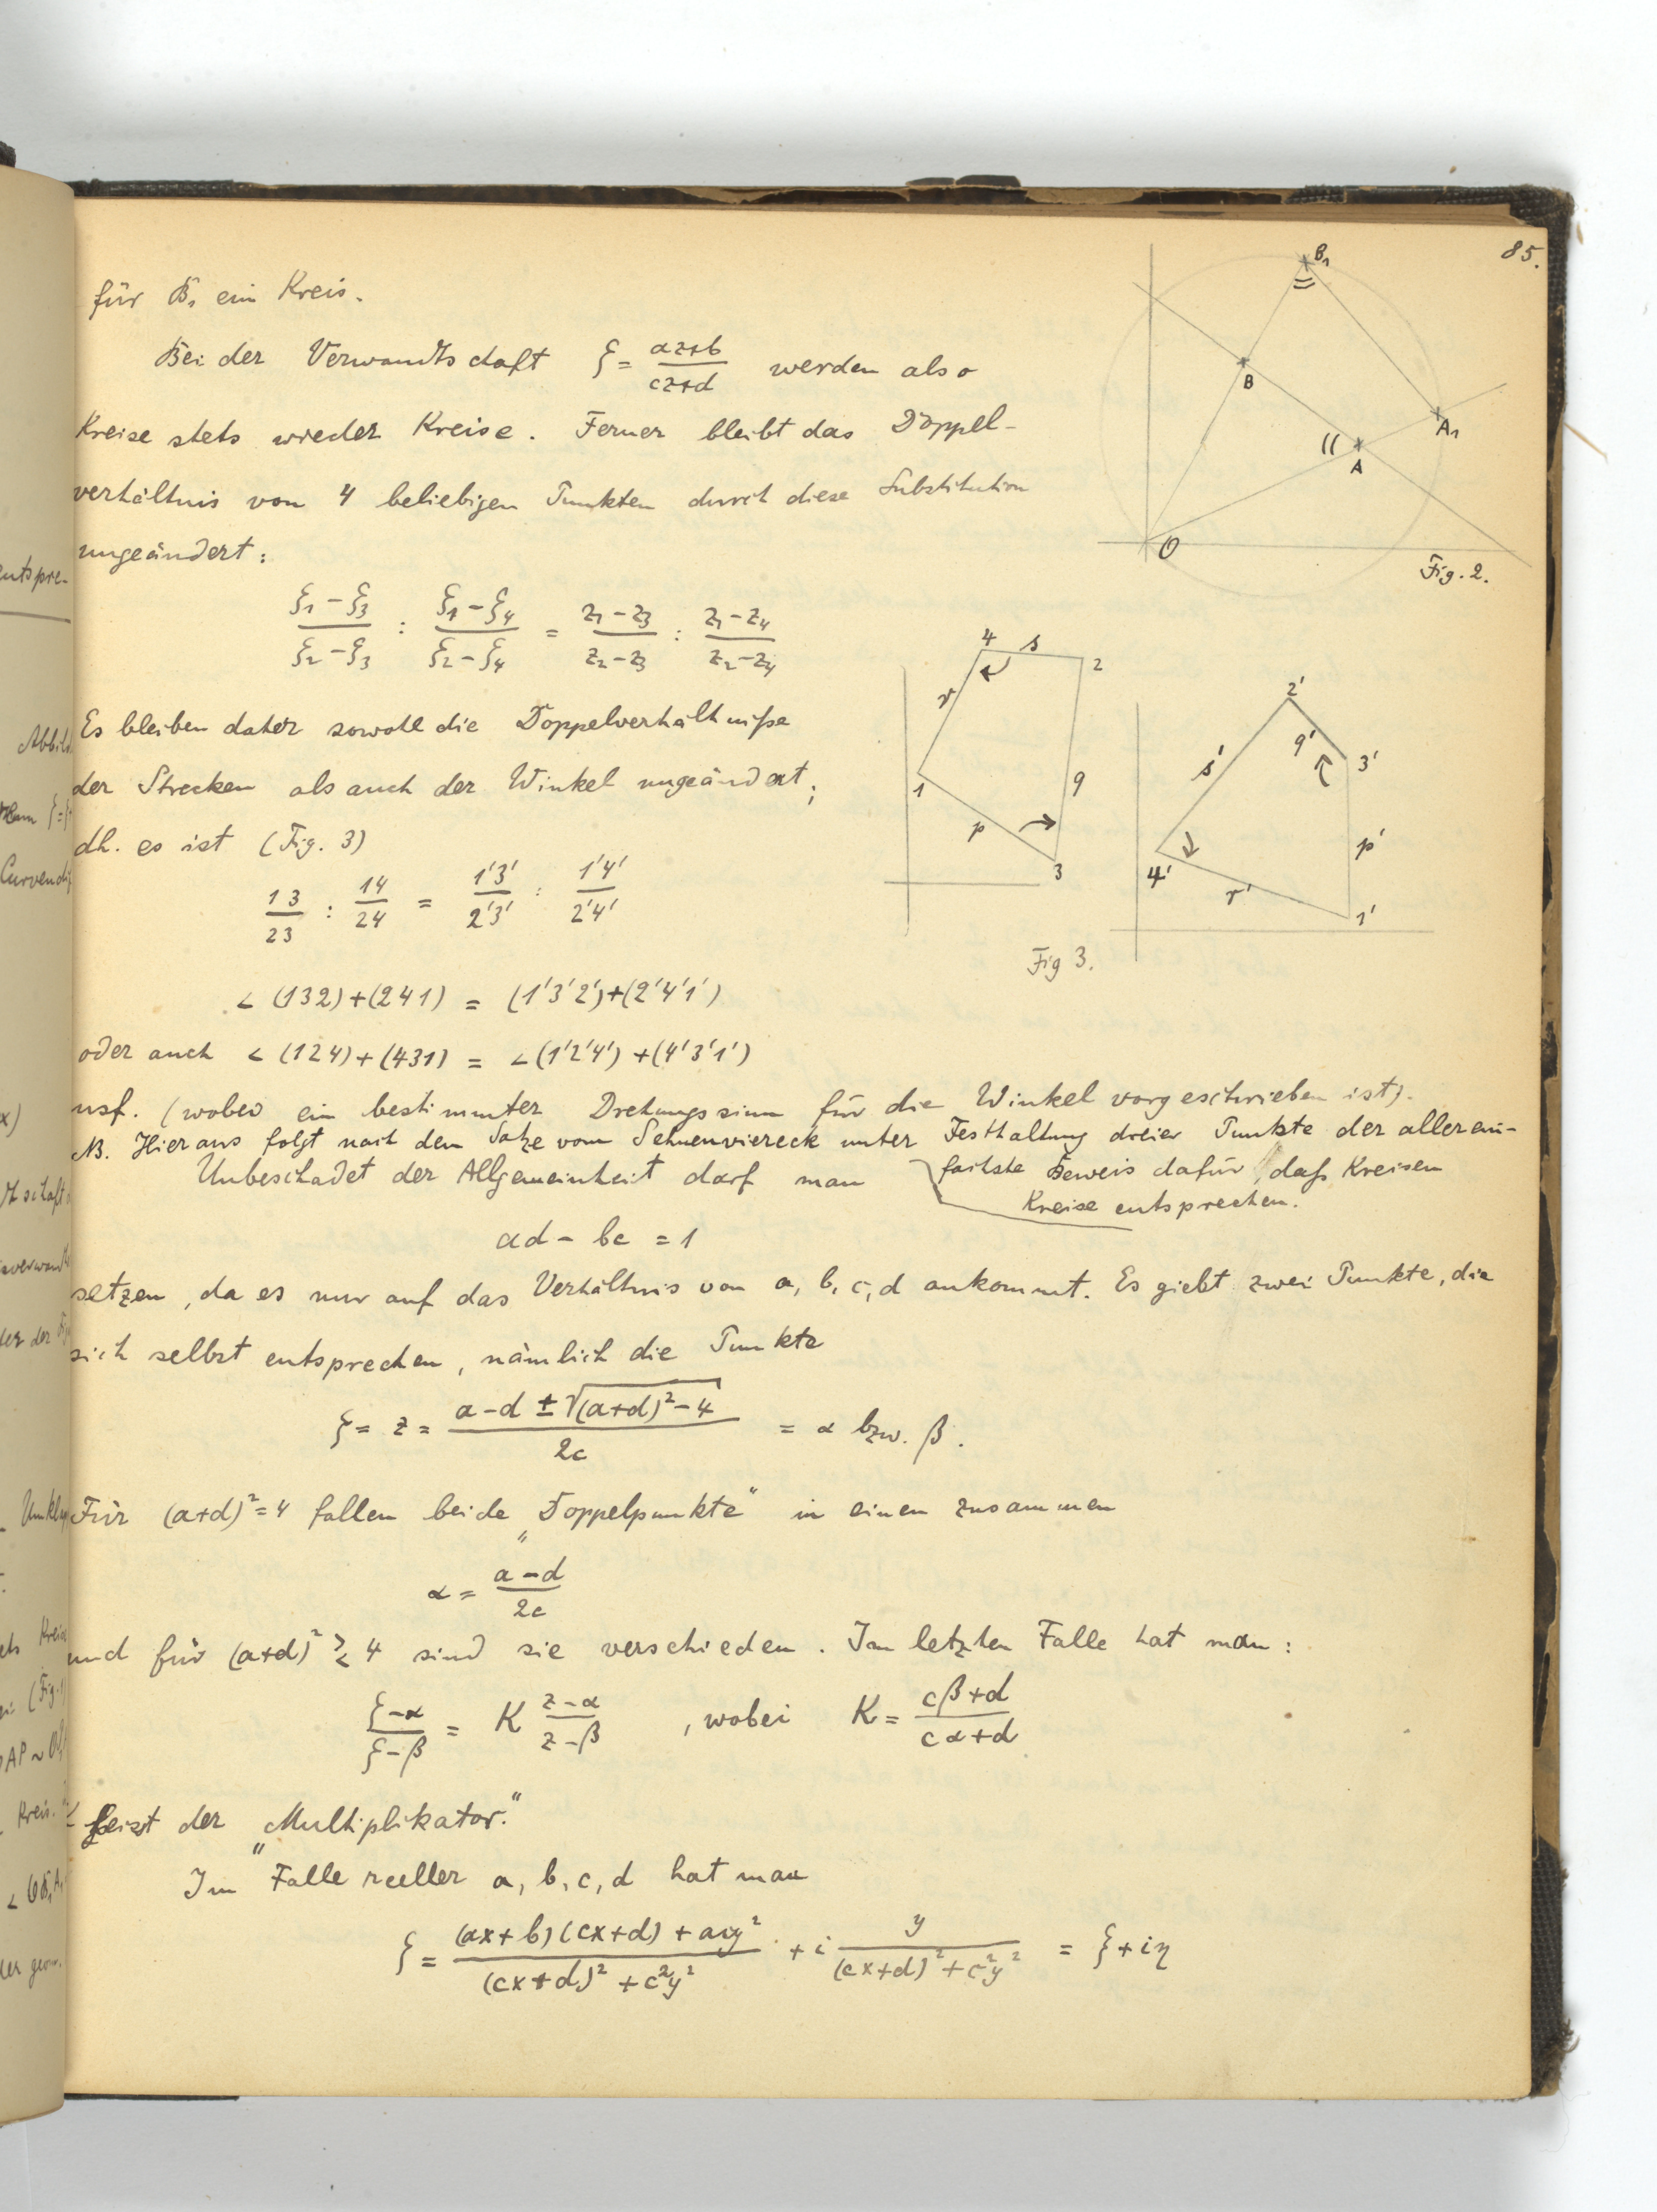 85.
für B₁ ein Kreis.
Bei der Verwandtschaft ζ = (az+b)/(cz+d) werden also
Kreise stets wieder Kreise. Ferner bleibt das Doppel-
verhältnis von 4 beliebigen Punkten durch diese Substitution
ungeändert:
(ζ₁-ζ₃)/(ζ₂-ζ₃) : (ζ₁-ζ₄)/(ζ₂-ζ₄) = (z₁-z₃)/(z₂-z₃) : (z₁-z₄)/(z₂-z₄)
Es bleiben daher sowohl die Doppelverhältniße
der Strecken als auch der Winkel ungeändert;
dh. es ist (Fig. 3)
13/23 : 14/24 = 1'3'/2'3' : 1'4'/2'4'
∠ (132)+(241) = (1'3'2')+(2'4'1')
oder auch ∠ (124)+(431) = ∠(1'2'4')+(4'3'1')
usf. (wobei ein bestimmter Drehungssinn für die Winkel vorgeschrieben ist).
NB. Hieraus folgt nach dem Satze vom Sehnenviereck unter Festhaltung dreier Punkte der allerein-
fachste Beweis dafür, daß Kreisen
Kreise entsprechen.
Unbeschadet der Allgemeinheit darf man
ad - bc = 1
setzen, da es nur auf das Verhältnis von a, b, c, d ankommt. Es giebt zwei Punkte, die
sich selbst entsprechen, nämlich die Punkte
ζ = z = (a-d ± √((a+d)²-4))/2c = α bzw. β.
Für (a+d)²=4 fallen beide „Doppelpunkte“ in einen zusammen
α = (a-d)/2c
und für (a+d)² ≷ 4 sind sie verschieden. Im letzten Falle hat man:
(ζ-α)/(ζ-β) = K (z-α)/(z-β), wobei K = (cβ+d)/(cα+d)
heisst der „Multiplikator.“
Im Falle reeller a, b, c, d hat man
ζ = ((ax+b)(cx+d)+acy²)/((cx+d)²+c²y²) + i y/((cx+d)²+c²y²) = ξ+iη
B₁
B
A₁
A
O
Fig. 2.
4
s
2
r
1
q
p
3
2'
q'
3'
s'
p'
4'
r'
1'
Fig 3.
entspre-